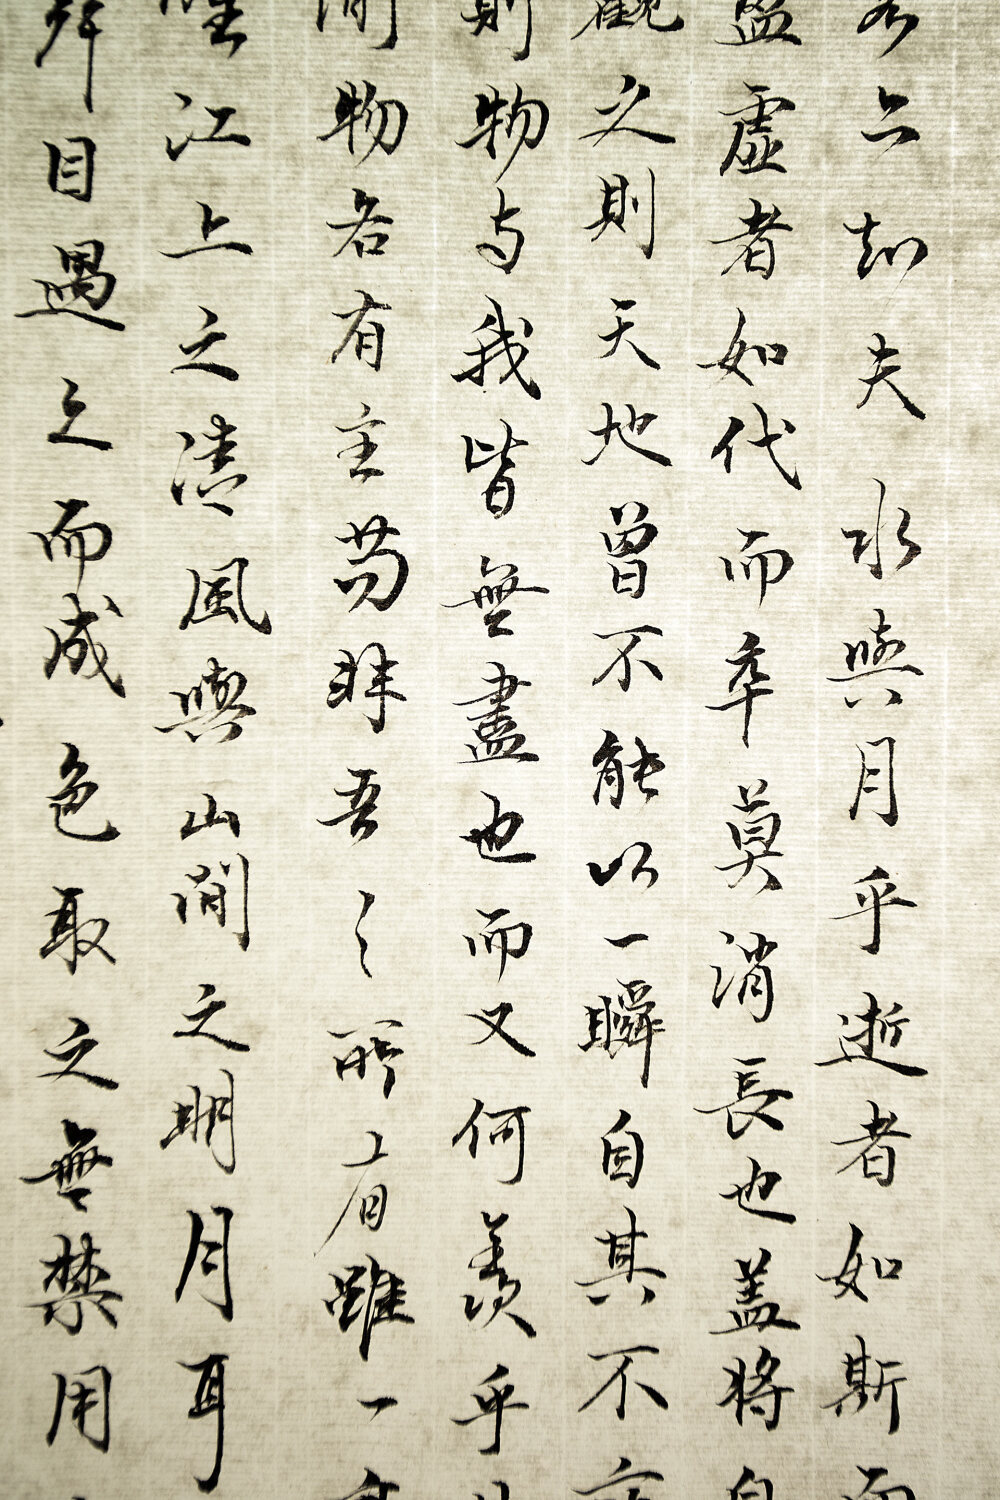 客亦知夫水與月乎逝者如斯而
盈虛者如代而卒莫消長也盖將自
觀之則天地曾不能以一瞬自其不
則物与我皆無盡也而又何羨乎且
間物各有主苟非吾之所有雖一毫
唯江上之清風與山間之明月耳
聲目遇之而成色取之無禁用